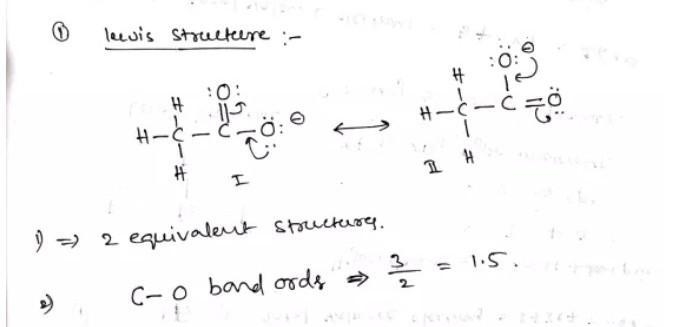 ① lewis structure :-
:O:
H
H-C-C-Ö:⊖
H
I
:Ö:⊖
H
H-C-C=Ö
H
II
1) => 2 equivalent structures.
2) C-O bond ords => 3/2 = 1.5.